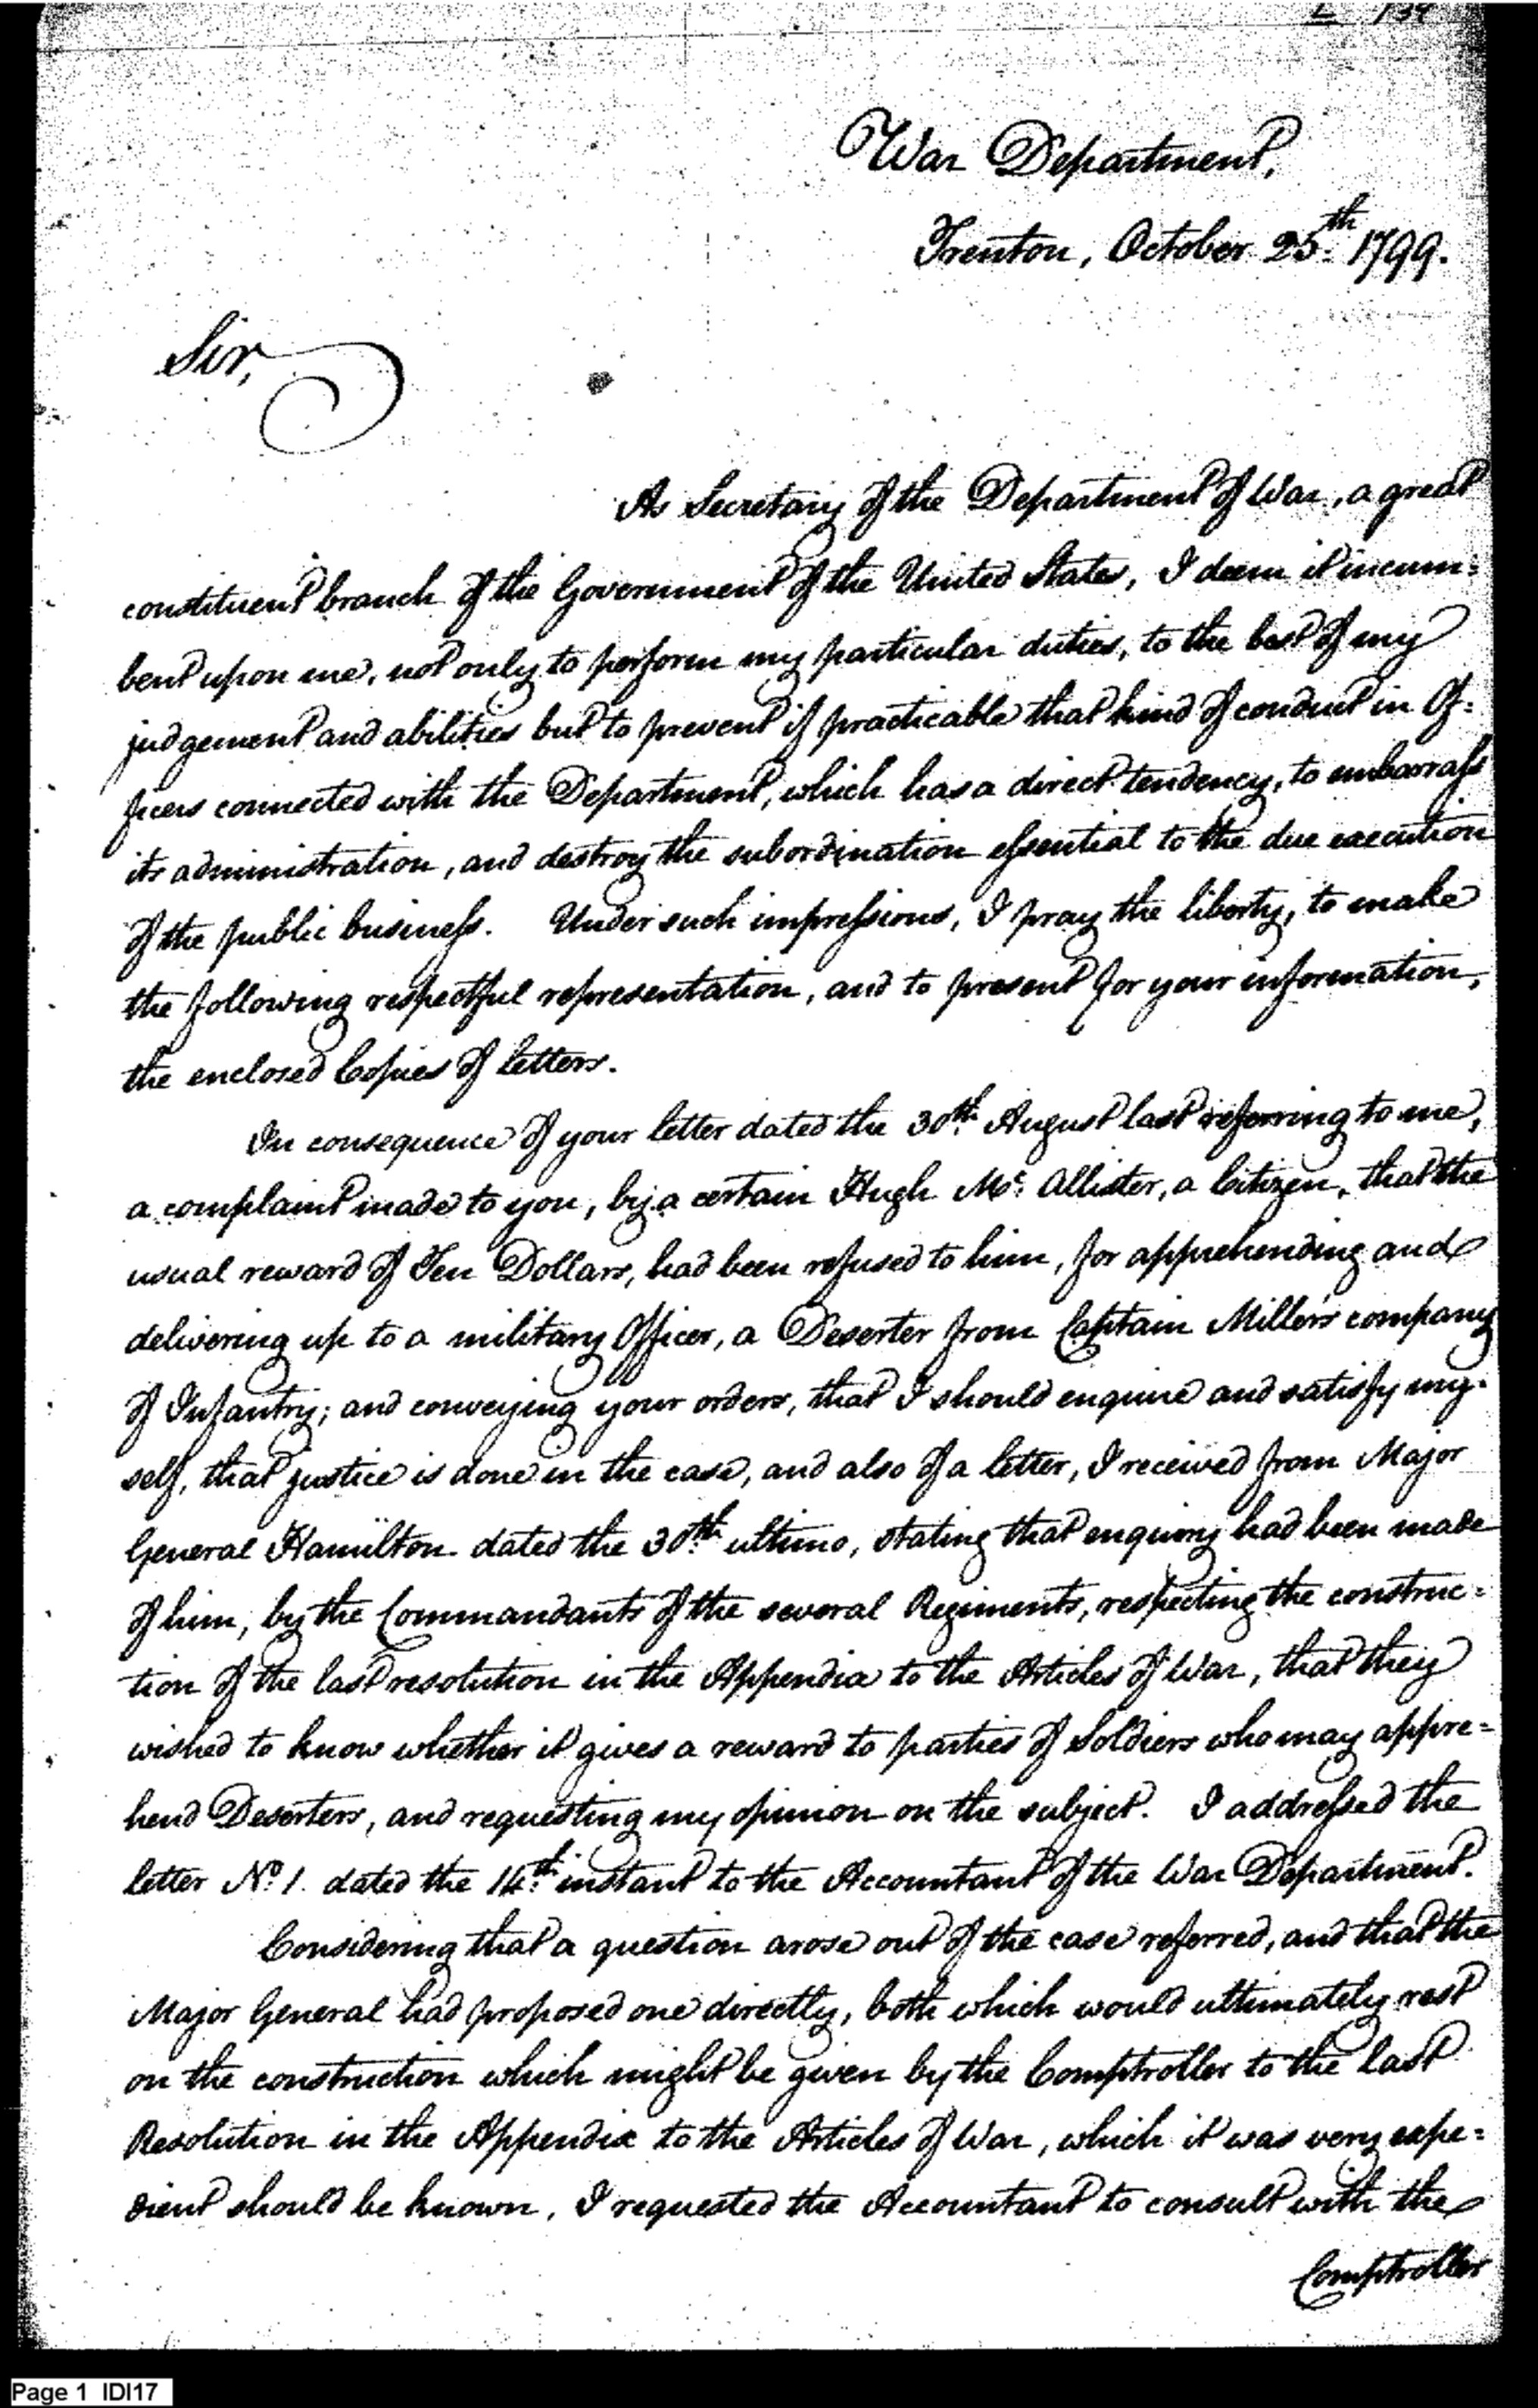 War Department,
Trenton, October 25th. 1799.
Sir,
As Secretary of the Department of War, a great
constituent branch of the Government of the United States, I deem it incum=
bent upon me, not only to perform my particular duties, to the best of my
judgement and abilities but to prevent if practicable that kind of conduct in Of=
ficers connected with the Department, which has a direct tendency, to embarrass
its administration, and destroy the subordination essential to the due execution
of the public business. Under such impressions, I pray the liberty, to make
the following respectful representation, and to present for your information,
the enclosed Copies of letters.
In consequence of your letter dated the 30th. August last referring to me,
a complaint made to you, by a certain Hugh Mc. Allister, a Citizen, that the
usual reward of Ten Dollars, had been refused to him, for apprehending and
delivering up to a military Officer, a Deserter from Captain Miller's company
of Infantry; and conveying your orders, that I should enquire and satisfy my-
self, that justice is done in the case, and also of a letter, I received from Major
General Hamilton dated the 30th. ultimo, stating that enquiry had been made
of him, by the Commandants of the several Regiments, respecting the construc=
tion of the last resolution in the Appendix to the Articles of War, that they
wished to know whether it gives a reward to parties of Soldiers who may appre=
hend Deserters, and requesting my opinion on the subject. I addressed the
letter No. 1. dated the 14th. instant to the Accountant of the War Department.
Considering that a question arose out of the case referred, and that the
Major General had proposed one directly, both which would ultimately rest
on the construction which might be given by the Comptroller to the last
Resolution in the Appendix to the Articles of War, which it was very expe=
dient should be known, I requested the Accountant to consult with the
Comptroller
Page 1 IDI17